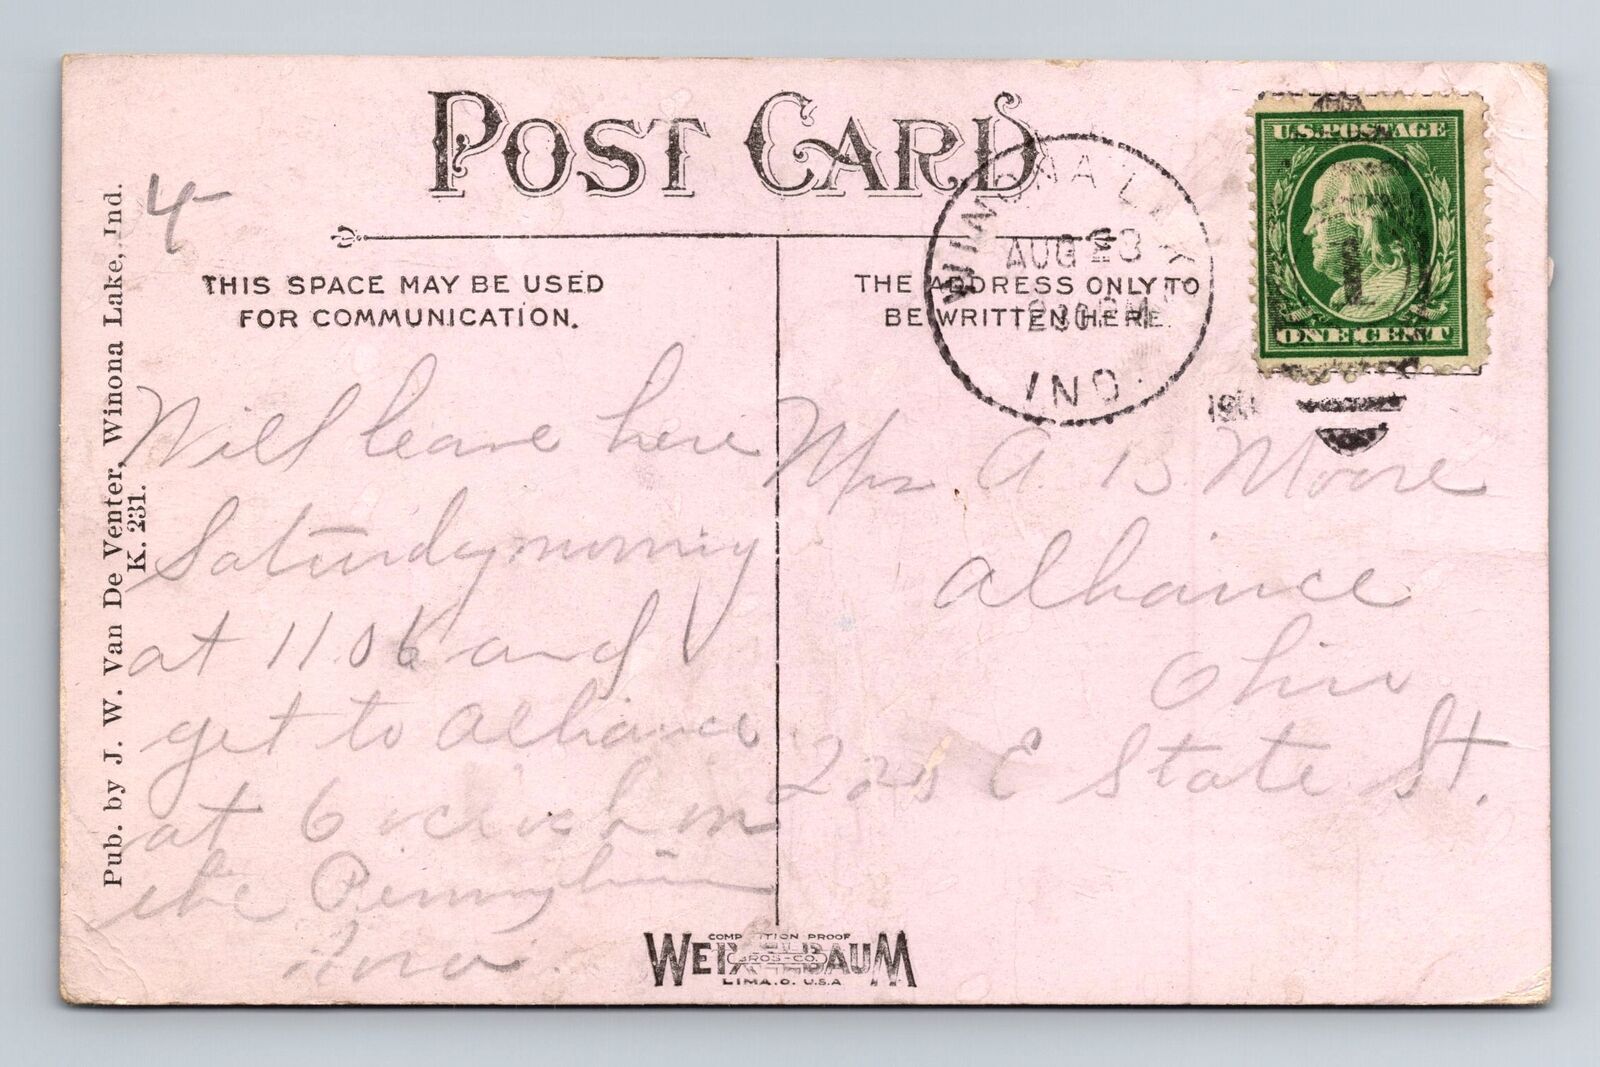 POST CARD
4-
THIS SPACE MAY BE USED
FOR COMMUNICATION.
THE ADDRESS ONLY TO
BE WRITTEN HERE
WINONA LAKE
AUG 23
230 PM
IND.
191
U.S. POSTAGE
1
ONE CENT
Pub. by J. W. Van De Venter, Winona Lake, Ind.
K. 231.
Will leave here
Saturday morning
at 11 06 and
get to Alliance
at 6 oclock on
the Pennsylvania
Mrs A. B. Moore
Alliance
Ohio
E State St.
COMPETITION PROOF
WEIXELBAUM
BROS-CO.
LIMA. O. U.S.A